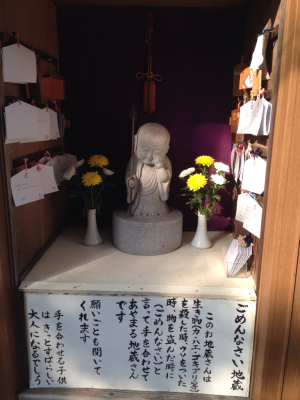 ごめんなさい地蔵
このお地蔵さんは
生き物(カ、ハエ、ゴキブリ等)
を殺した時、ウソをついた
時、物を盗んだ時に
(ごめんなさい)と
言って手を合わせて
あやまる地蔵さん
です
願いごとも聞いて
くれます
手を合わせる子供
はきっとすばらしい
大人になるでしょう